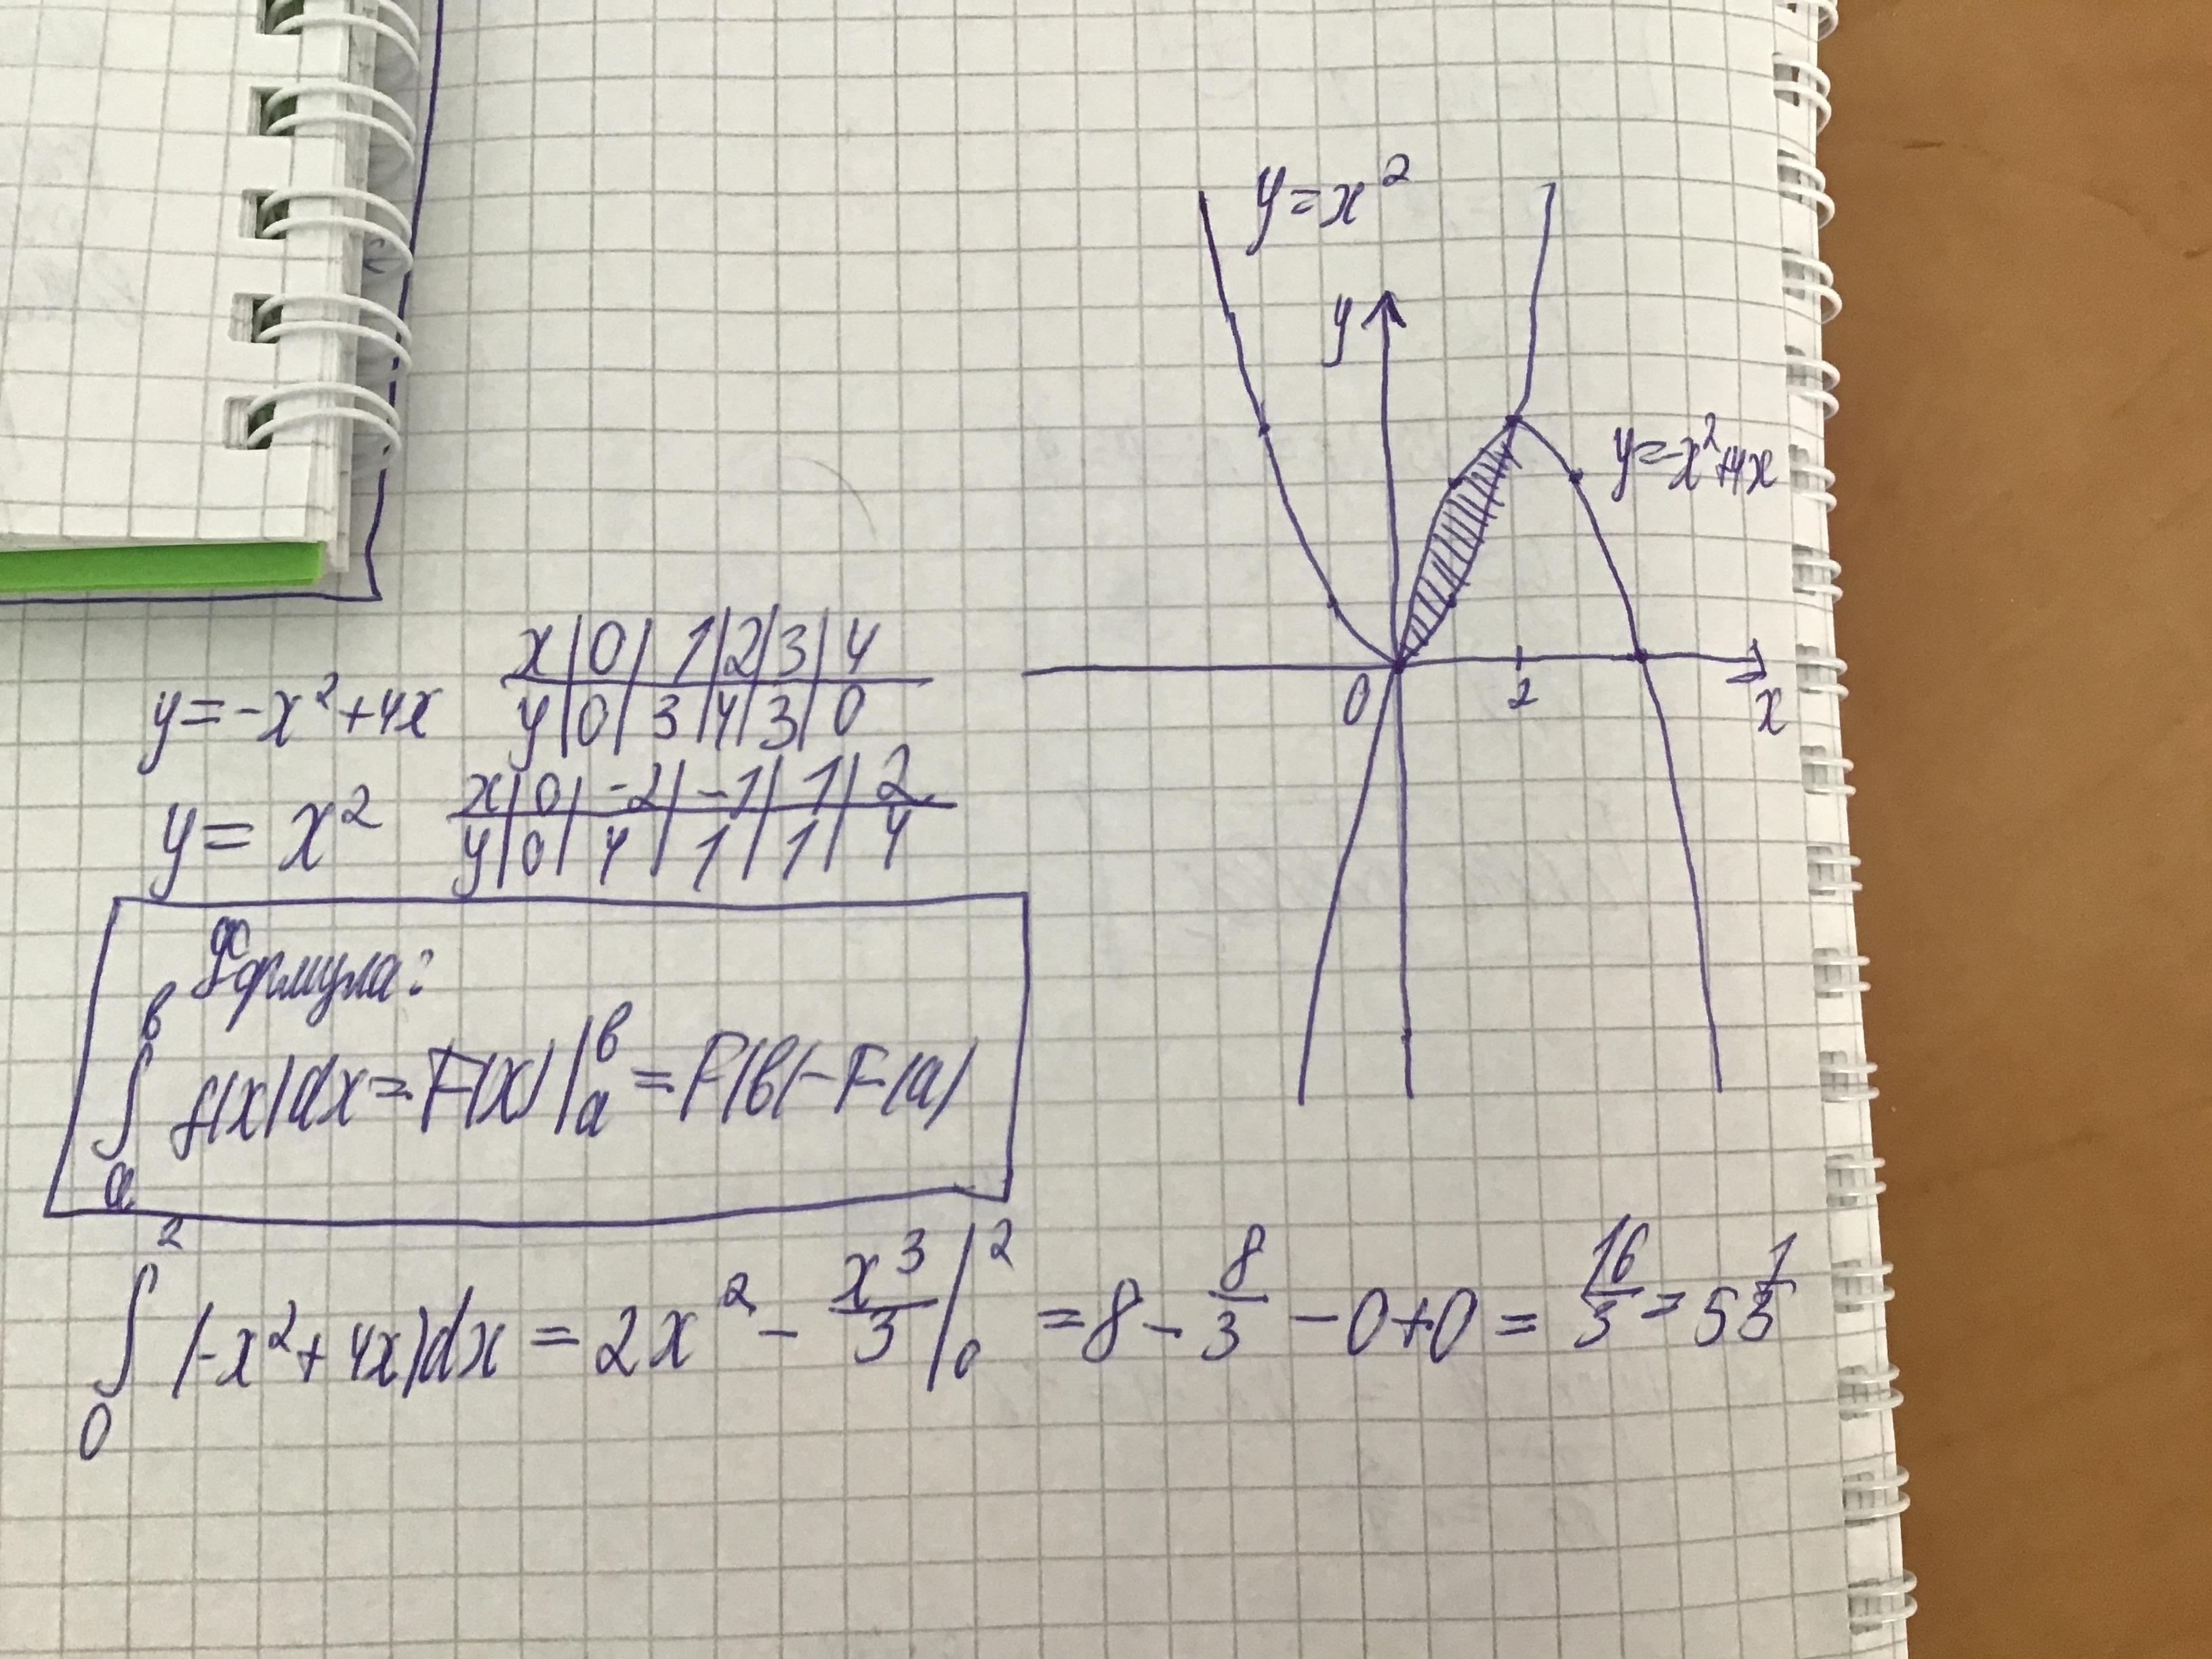 y=x²
y
y=-x²+4x
0 2 x
y=-x²+4x x|0|1|2|3|4
y|0|3|4|3|0
y=x² x|0|-2|-1|1|2
y|0|4|1|1|4
Формула:
∫ₐᵇ f(x)dx=F(x)|ₐᵇ=F(b)-F(a)
∫₀² (-x²+4x)dx=2x²-x³/3|₀²=8-8/3-0+0=16/3=5 1/3